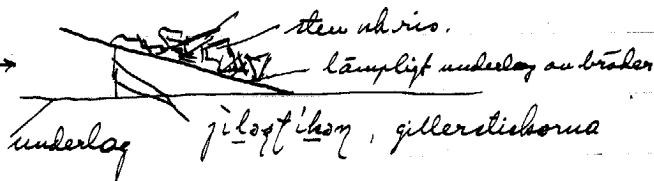 sten och ris.
lämpligt underlag av bräder
underlag
gillerstickorna